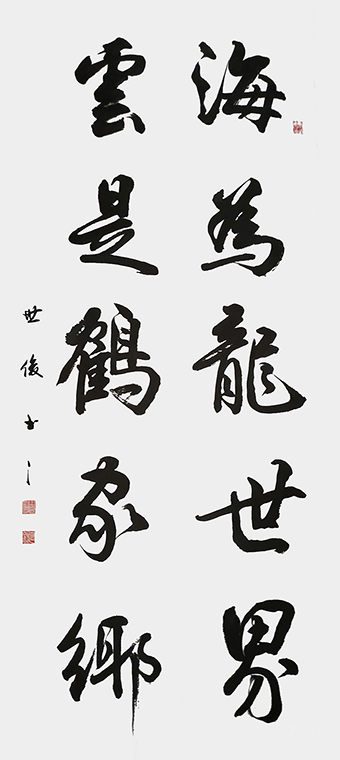 海為龍世界
雲是鶴家鄉
世俊书之